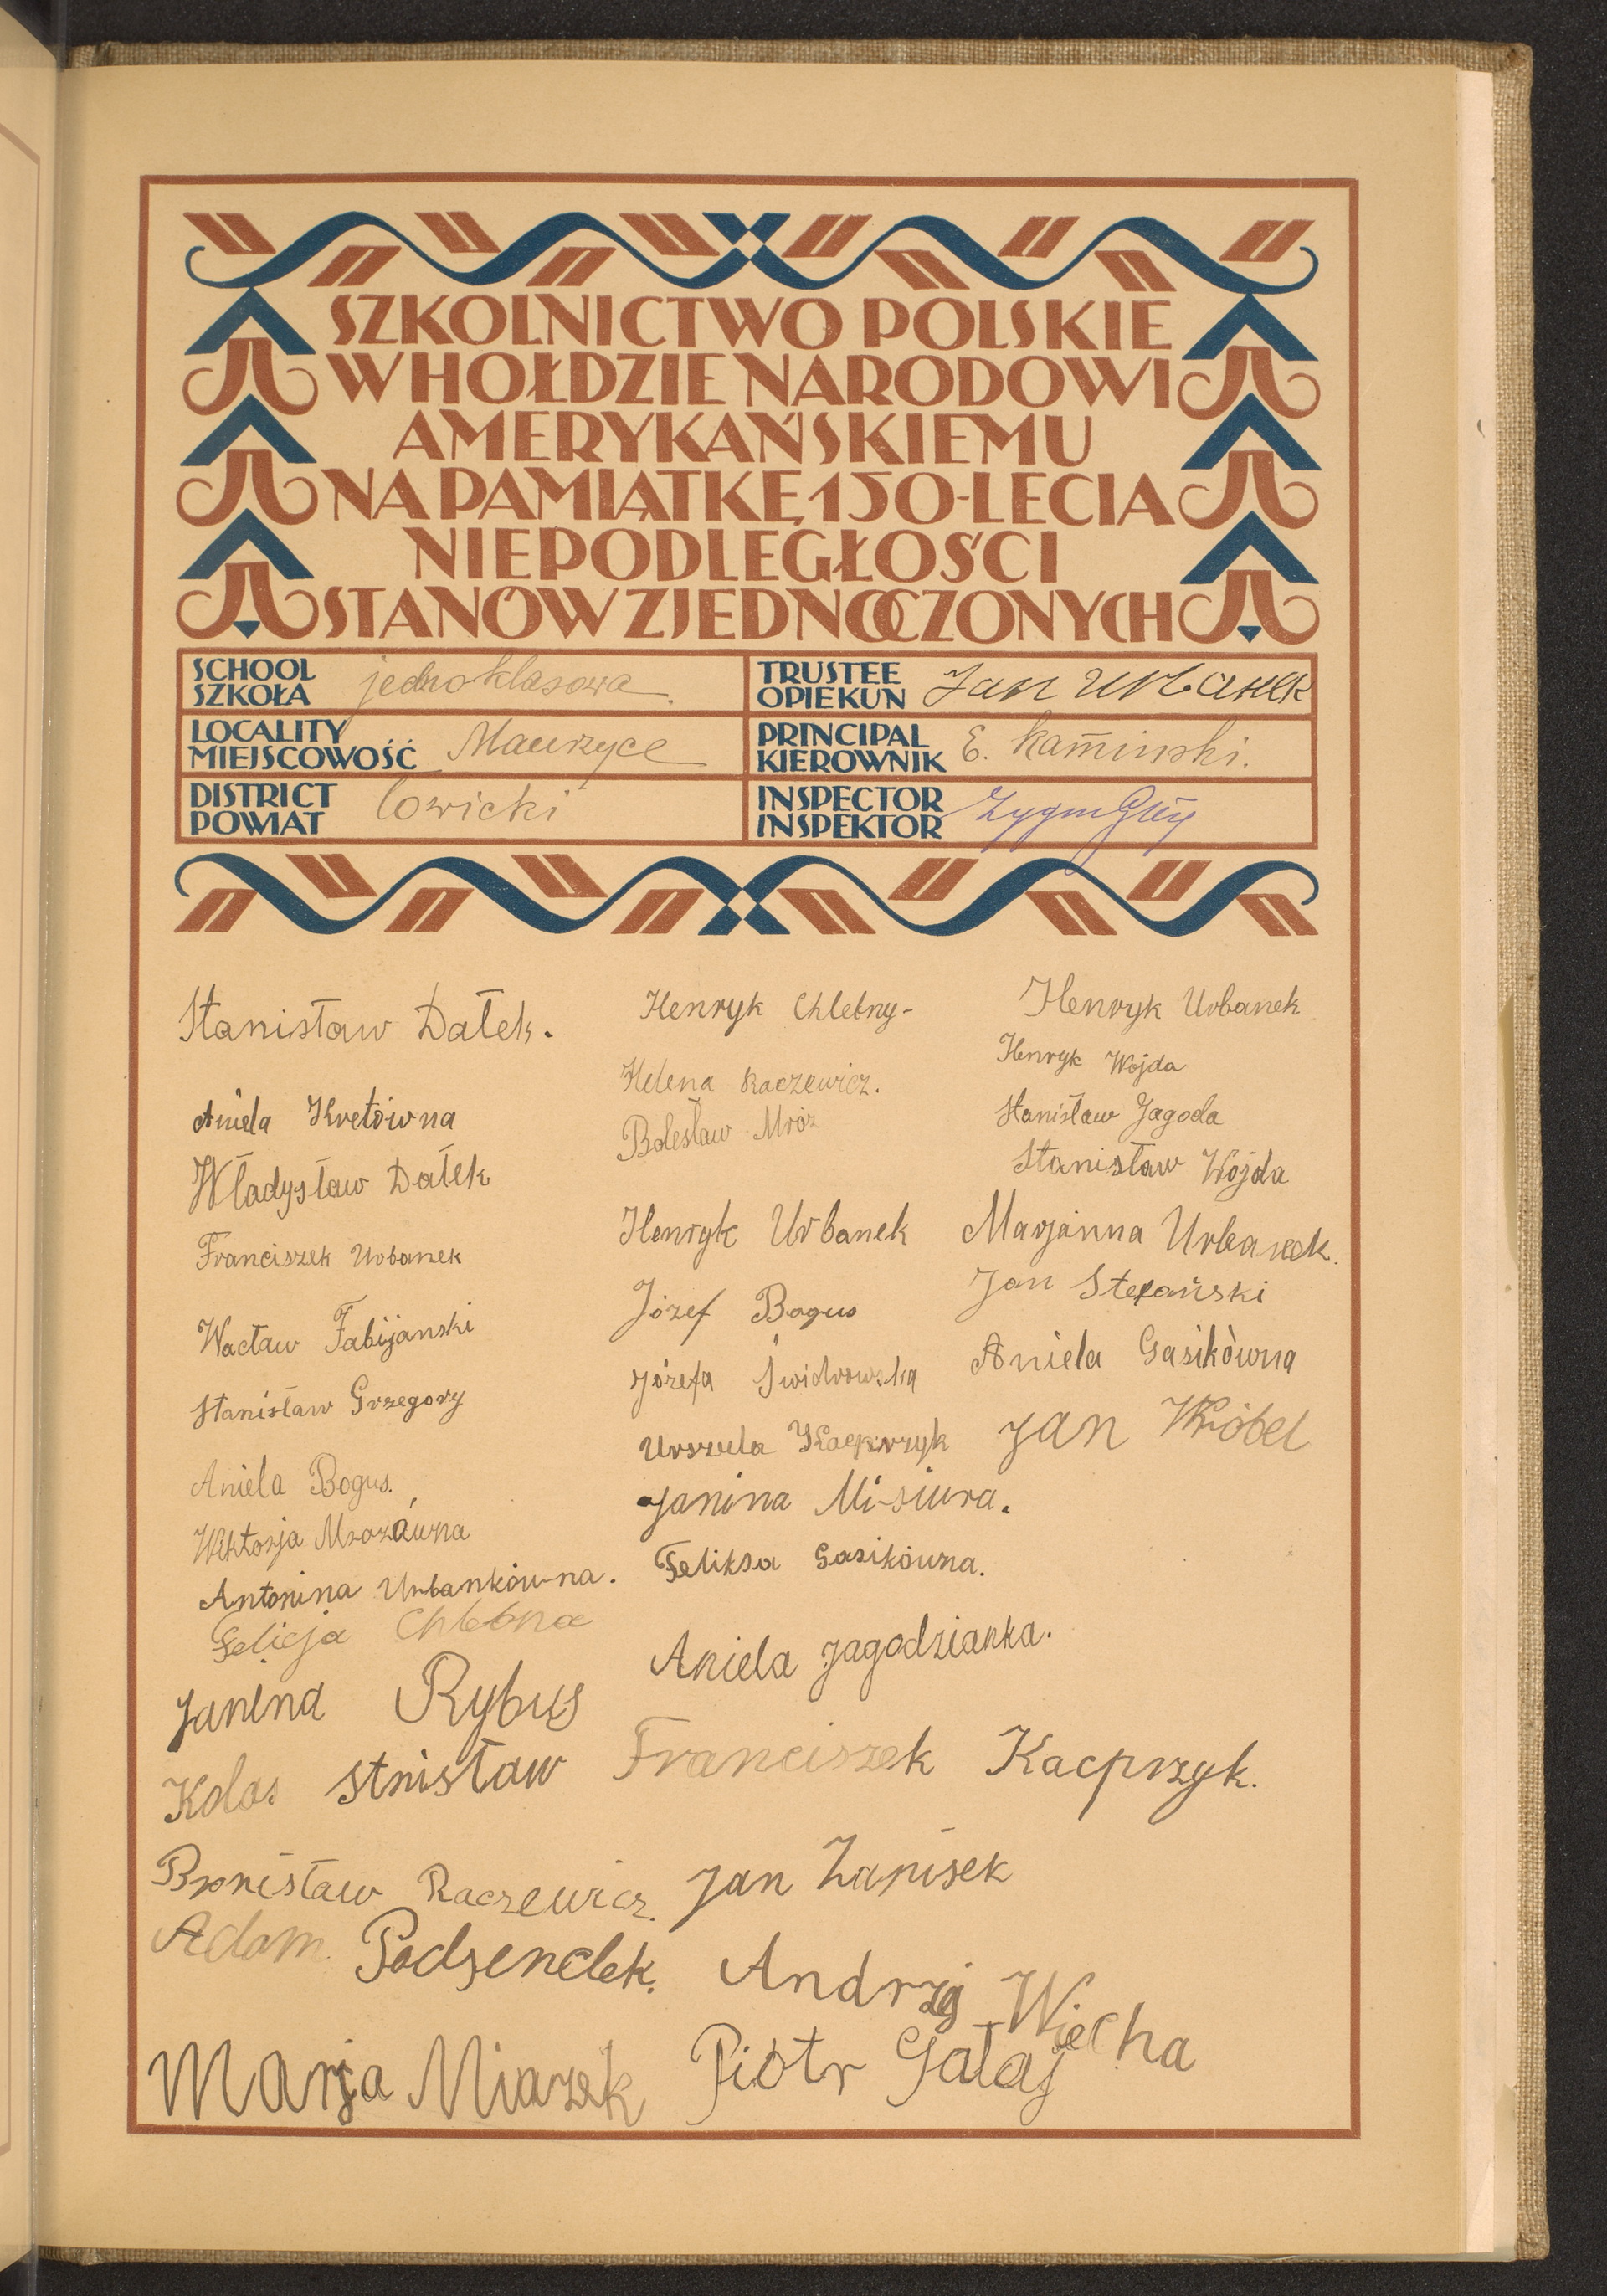 SZKOLNICTWO POLSKIE
W HOŁDZIE NARODOWI
AMERYKAŃSKIEMU
NA PAMIĄTKĘ 150-LECIA
NIEPODLEGŁOŚCI
STANÓW ZJEDNOCZONYCH
SCHOOL
SZKOŁA
jednoklasowa
TRUSTEE
OPIEKUN
Jan Urbanek
LOCALITY
MIEJSCOWOŚĆ
Maurzyce
PRINCIPAL
KIEROWNIK
E. Kamiński.
DISTRICT
POWIAT
łowicki
INSPECTOR
INSPEKTOR
Stanisław Dałek.
Aniela Kretówna
Władysław Dałek
Franciszek Urbanek
Wacław Fabijanski
Stanisław Grzegory
Aniela Bogus.
Wiktorja Mrozówna
Antonina Urbankówna.
Felicja Chlebna
Janina Rybus
Kolos Stnisław
Bronisław Raczewicz.
Adam. Podsendek.
Marja Miazek
Henryk Chlebny-
Helena Raczewicz.
Bolesław Mróz
Henryk Urbanek
Józef Bogus
Józefa Świdrowska
Urszula Kacprzyk
Janina Misiura.
Feliksa Gasikówna.
Aniela Jagodzianka.
Franciszek Kacprzyk.
Jan Łapisek
Andrzej Wiecha
Piotr Gałaj
Henryk Urbanek
Henryk Wojda
Stanisław Jagoda
Stanisław Wojda
Marjanna Urbanek.
Jan Stefański
Aniela Gasikówna
Jan Wróbel